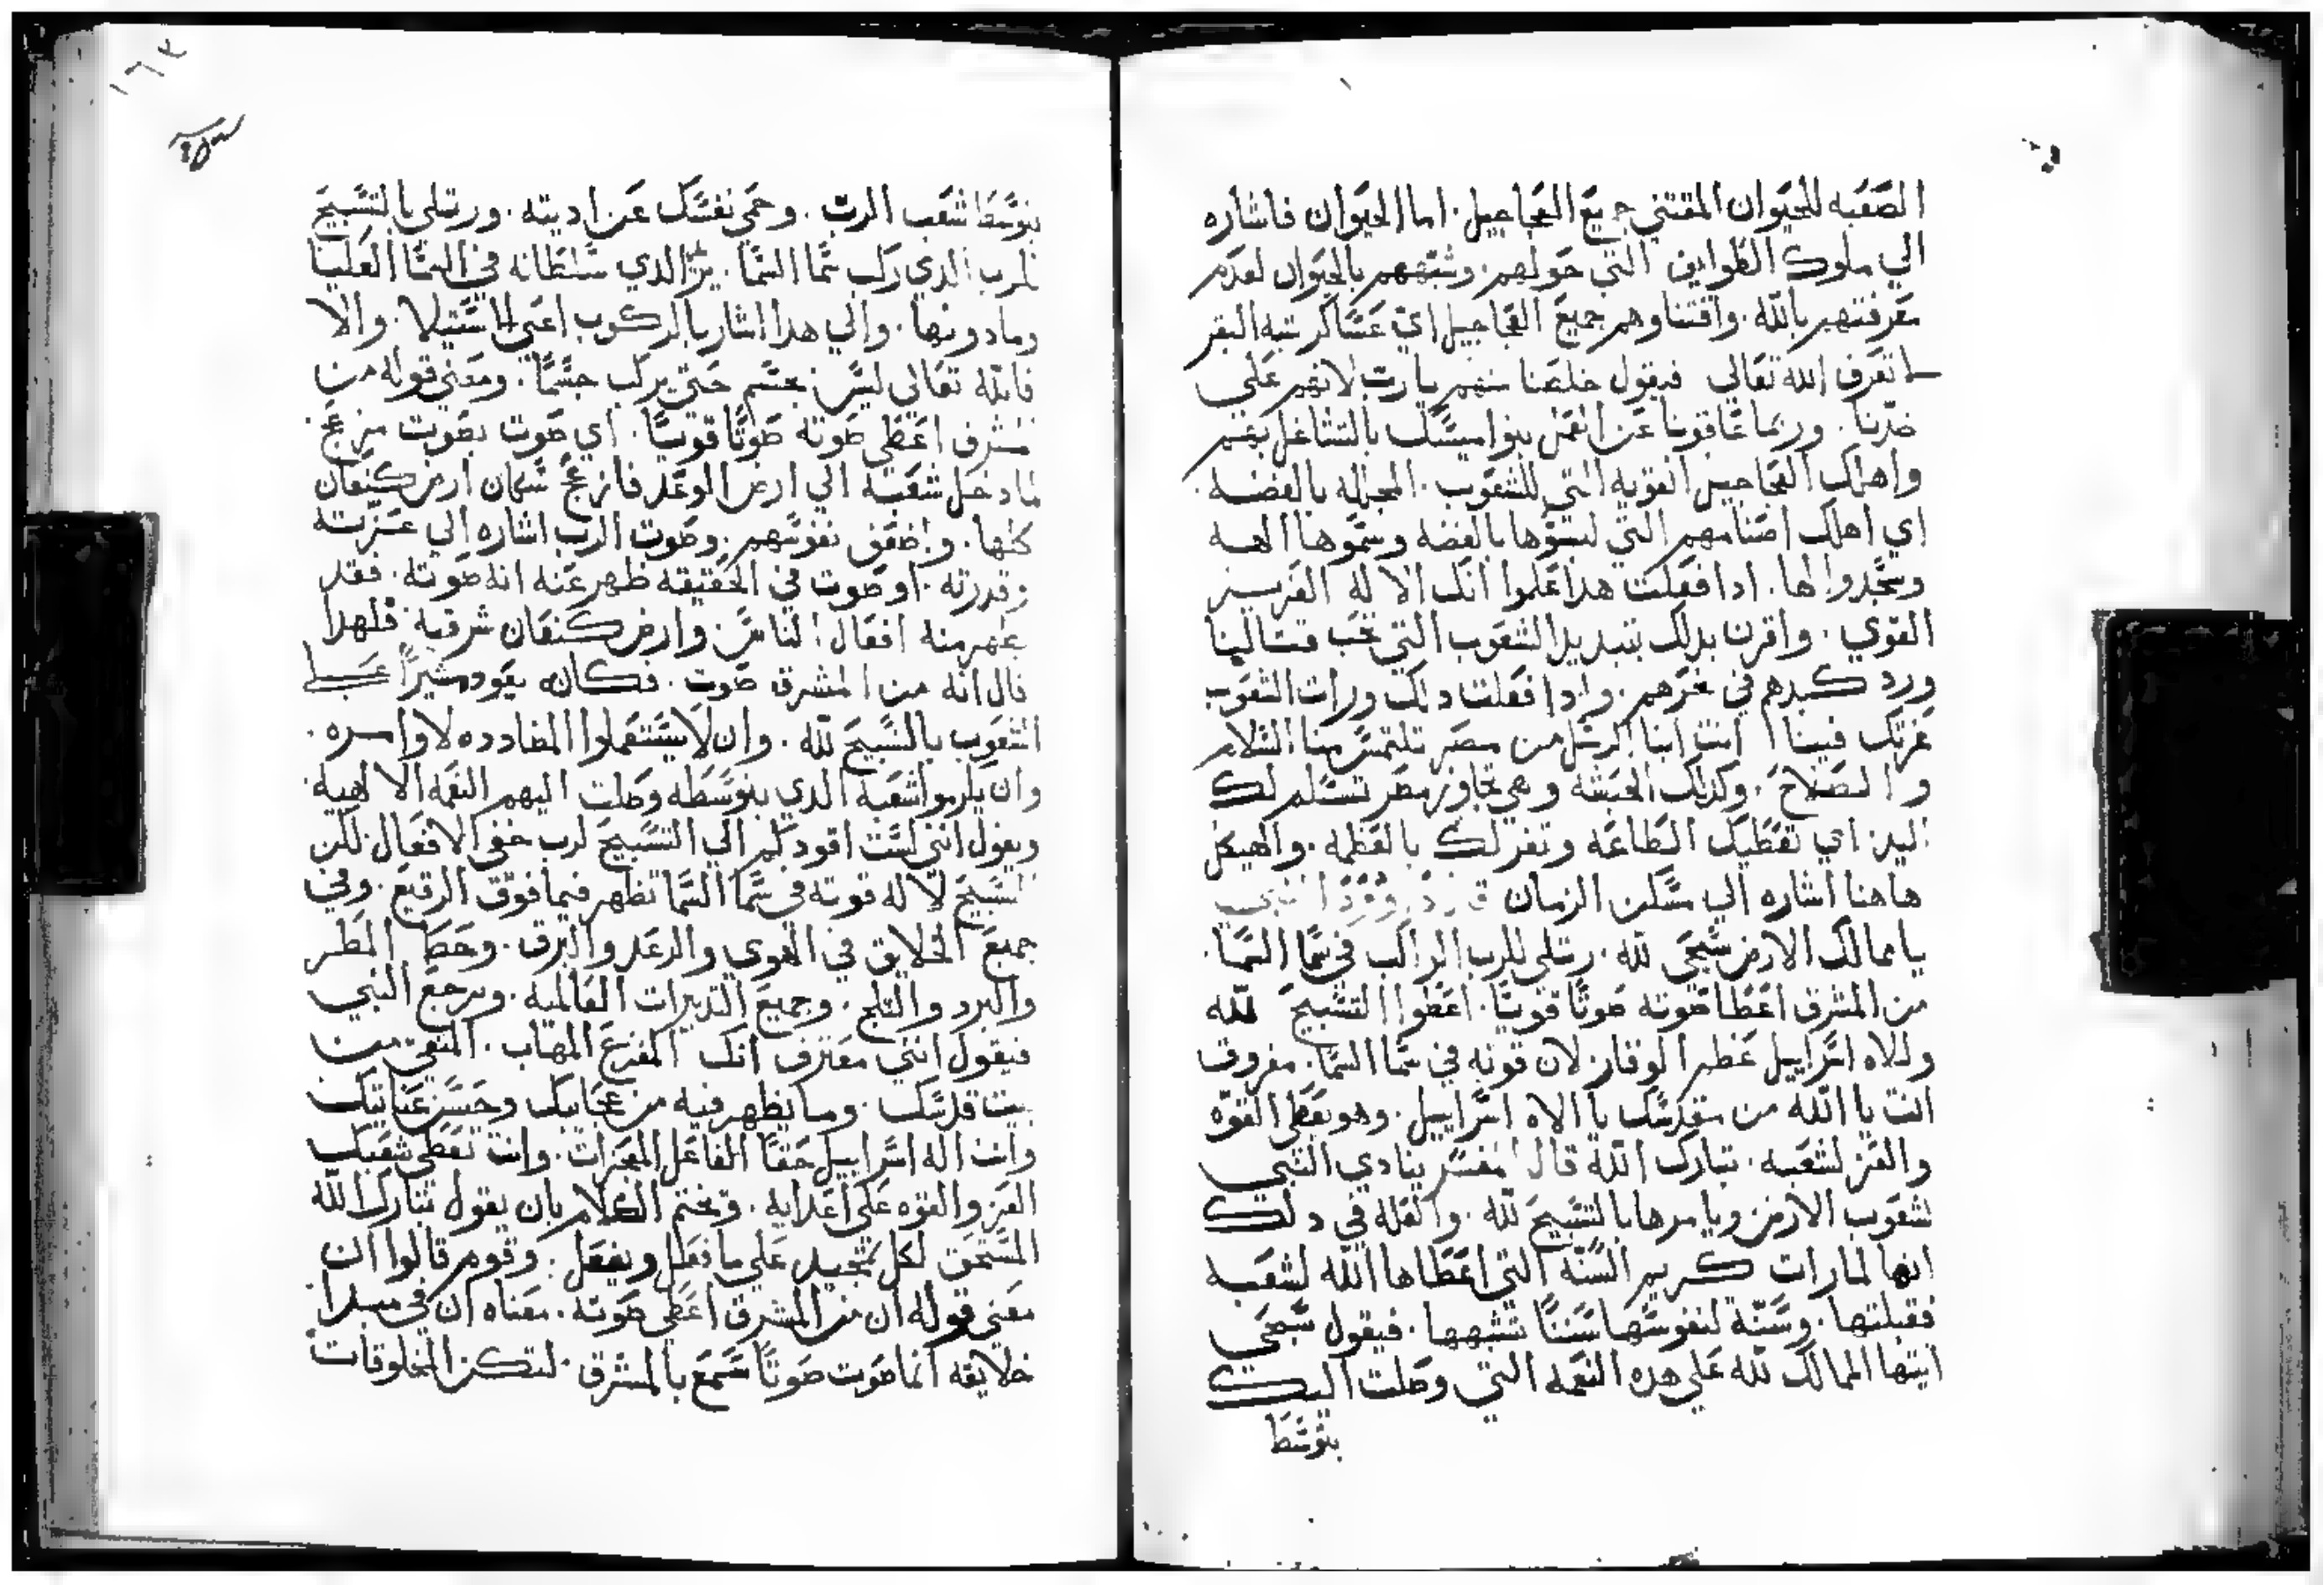 الصعبه للحيوان المقتني جميع العجاجيل. اما الحيوان فاشاره
الي ملوك الطوايف التي حولهم. وشبههم بالحيوان لعدم
معرفتهم بالله. واقتناوهم جميع العجاجيل اي عساكر شبه البقر
لا تعرف الله تعالي فيقول خلصنا منهم يا رب لانهم على
ضدنا. وربما عاقونا عن العمل بنواميسك بالتشاغل بهم
واهلك العجاجيل القويه التي للشعوب. المجزله بالفضه.
اي اهلك اصنامهم التي لبسوها بالفضه وسموها الهه
وسجدوا لها. ادا فعلت هدا علموا انك الاله العزيز
القوي. واقرن بدلك تبديد الشعوب التي تحب قتالينا
ورد كيدهم في نحرهم. وادا فعلت دلك ورات الشعوب
عزتك فيينا اتت اينا الرسل من مصر تلتمس منا السلام
والصلاح. وكذلك الحبشه وهي تجاوز مصر تستلم لك
اليد اي تعطيك الطاعه وتقر لك بالعظمه. والهيكل
هاهنا اشاره الي مسكن الزمان
يا ممالك الارض سبحي لله. رتلي للرب الراكب في سما السما.
من المشرق اعطا صوته صوتًا قويًا. اعطوا التسبيح لله
وللاه اسراييل عظم الوقار. لان قوته في سما السما. معروف
انت يا الله من مقدسك يا الاه اسراييل. وهو يعطي القوه
والعز لشعبه. تبارك الله قال المفسر ينادي النبي
لشعوب الارض ويامرها بالتسبيح لله. والعله في دلك
انها لما رات كريم السنّه التي اعطاها الله لشعبه
فقبلتها. وسنّه لنفوسها سننًا تشبهها. فيقول سبحي
ايتها الممالك لله على هده النعمه التي وصلت اليك
بتوسط
١٦٣
بتوسط شعب الرب. وحمي نفسك عن اديته. ورتلي بالتسبيح
للرب الدي ركب سما السما. الدي سلطانه في السما العليا
وما دونها. والي هدا اشار بالركوب اعني الاستيلا. والا
فالله تعالى ليس بجسم حتى يركب جسمًا. ومعنى قوله من
المشرق اعطي صوته صوتًا قويًا. اي صوت بصوت مزعج
لما دخل شعبه الي ارض الوعد فازعج سكان ارض كنعان
كلها. واضعف نفوسهم. وصوت الرب اشاره الي عزته
وقدرته. او صوت في الحقيقه ظهر عنه انه صوته. فقد
ظهر منه افعال الناس. وارض كنعان شرقيه فلهدا
قال انه من المشرق صوت. فكانه يعود مشيرًا على
الشعوب بالتسبيح لله. وان لا يستعملوا المضادده لاوامره.
وان يلزموا شعبه الدي بتوسطه وصلت اليهم النعمه الالهيه
ويقول انني لست اقودكم الي التسبيح لرب خفي الافعال لكن
التسبيح لاله قوته في سما السما تظهر فيما فوق الرقيع. وفي
جميع الخلايق في الهوي والرعد والبرق. وحط المطر
والبرد والتلج. وجميع التدبيرات العالميه. ويرجع النبي
فيقول انني معترف انك المفزع المهاب. المتقي من
بيت قدسك. وما يظهر فيه من عجايبك وحسن عنايتك
وانت اله اسراييل حقًا الفاعل المعجزات. وانت تعطي شعبك
العز والقوه على اعدايه. وتختم الكلام بان يقول تبارك الله
المستحق لكل تمجيد على ما فعل ويفعل. وقوم قالوا ان
معنى قوله ان من المشرق اعطي صوته. معناه ان في مبدا
خلايقه انما صوت صوتًا سمع بالمشرق. لتتكون المخلوقات